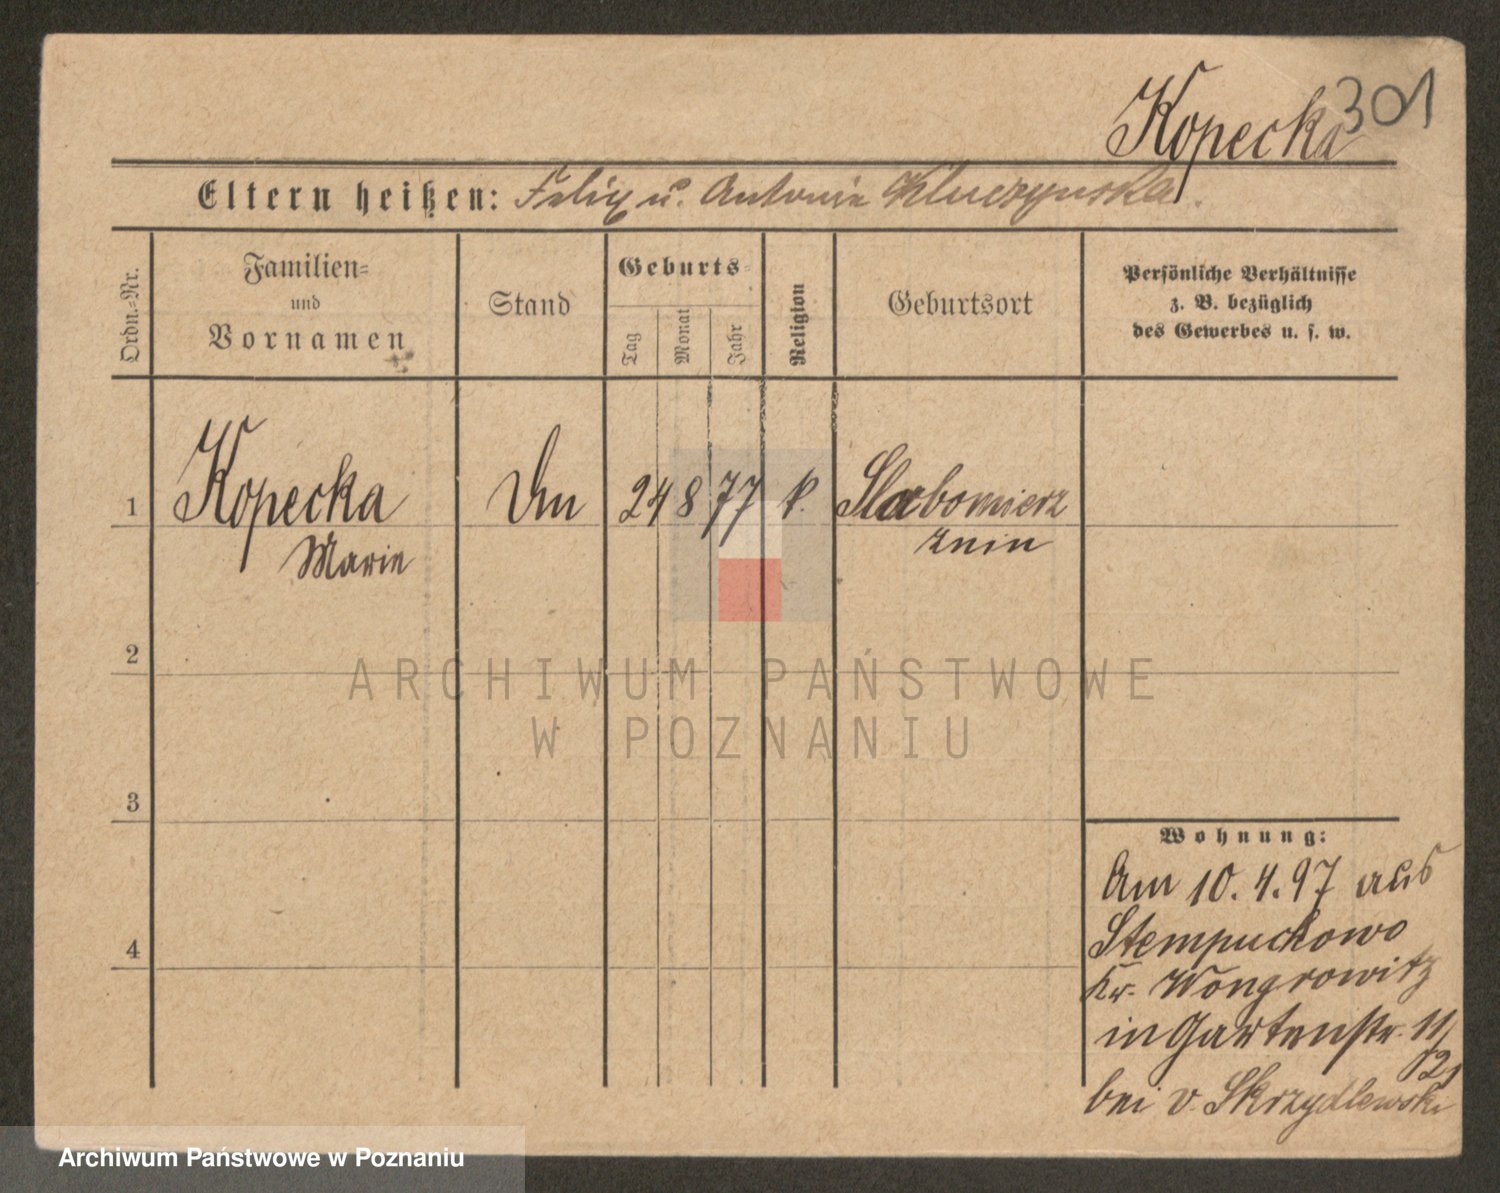 301
Kopecka
Eltern heißen: Felix u. Antonie Kluczynska.
Ordn.-Nr.
Familien-
und
Vornamen
Stand
Geburts-
Tag
Monat
Jahr
Religion
Geburtsort
Persönliche Verhältnisse
z. B. bezüglich
des Gewerbes u. s. w.
1 Kopecka 24 8 77 k. Slabomierz
Marie Znin
2
ARCHIWUM PAŃSTWOWE
W POZNANIU
3
Wohnung:
Am 10.4.97 aus
Stempuchowo
4
Kr. Wongrowitz
in Gartenstr. 11/
12,
bei v. Skrzydlewski
Archiwum Państwowe w Poznaniu